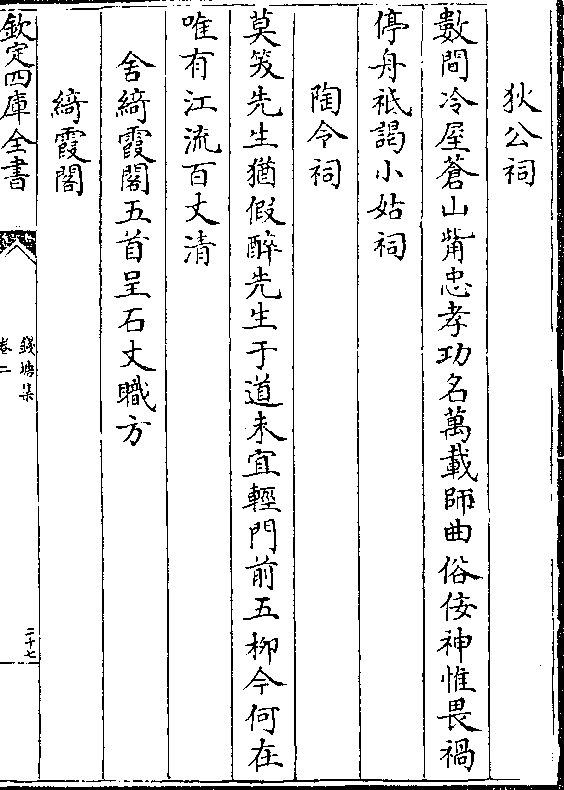 狄公祠
數間冷屋蒼山觜忠孝功名萬載師曲俗佞神惟畏禍
停舟祗謁小姑祠
陶令祠
莫笑先生猶假醉先生于道未宜輕門前五柳今何在
唯有江流百丈清
舍綺霞閣五首呈石丈職方
綺霞閣
欽定四庫全書
錢塘集
卷二
二十七